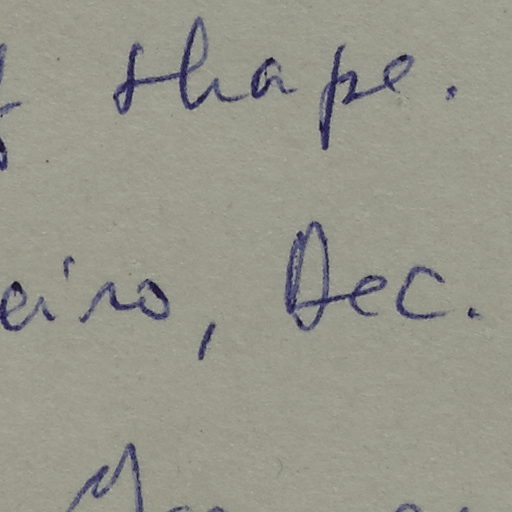 shape.
eiro, Dec.